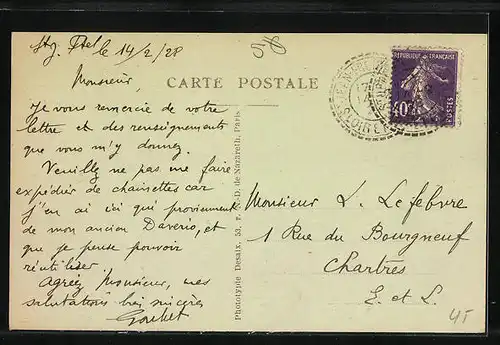 le 14/2/28
Monsieur,
Je vous remercie de votre
lettre et des renseignements
que vous m'y donnez.
Veuillez ne pas me faire
expédier de chainettes car
j'en ai ici qui proviennent
de mon ancien Daverio, et
que je pense pouvoir
réutiliser.
Agréez Monsieur, mes
salutations très sincères
CARTE POSTALE
Phototypie Desaix, 53, r. N.-D. de Nazareth, Paris
RÉPUBLIQUE FRANÇAISE
40c
POSTES
Monsieur L. Lefebvre
1 Rue du Bourgneuf
Chartres
E. et L.